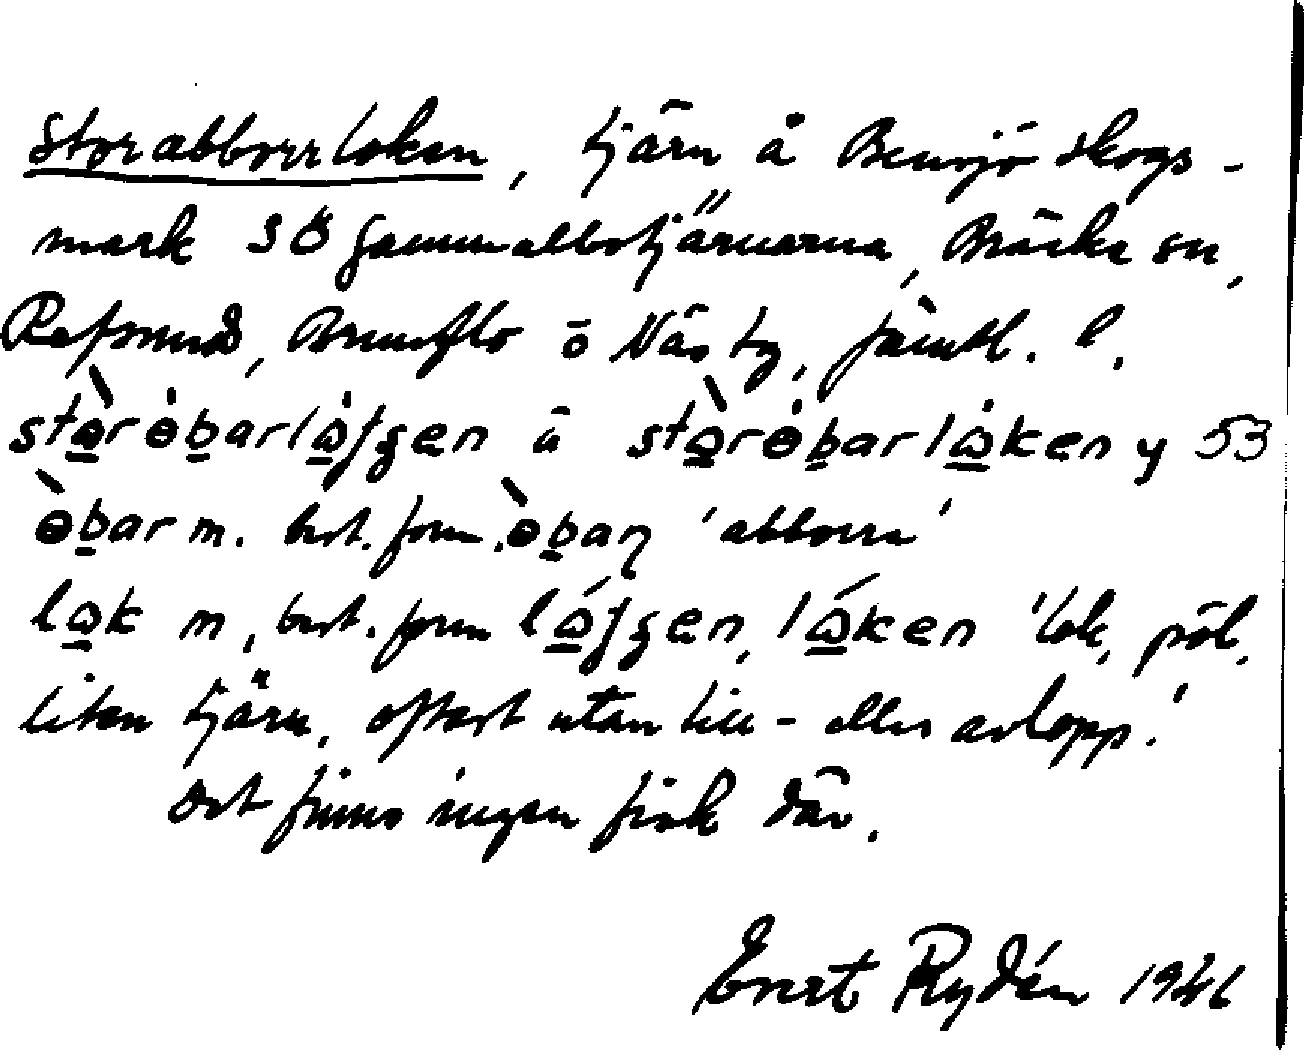 Storabborrloken, tjärn å Bensjö skogs-
mark SÖ Gammalbotjärnarna, Bräcke sn,
Refsund, Brunflo o Näs tg, Jämtl. l.
stɷ̀rɵ́barlɷ́ʃʒen å stɷ̀rɵ́barlɷ́ken y 53
ɵ̀bar m. best. form. ɵ̀baɳ 'abborre'
lɷk m, best. form lɷ́ʃʒen, lɷ́ken 'lok, pöl,
liten tjärn, oftast utan till- eller avlopp.'
Det finns ingen fisk där.
Evert Rydén 1946